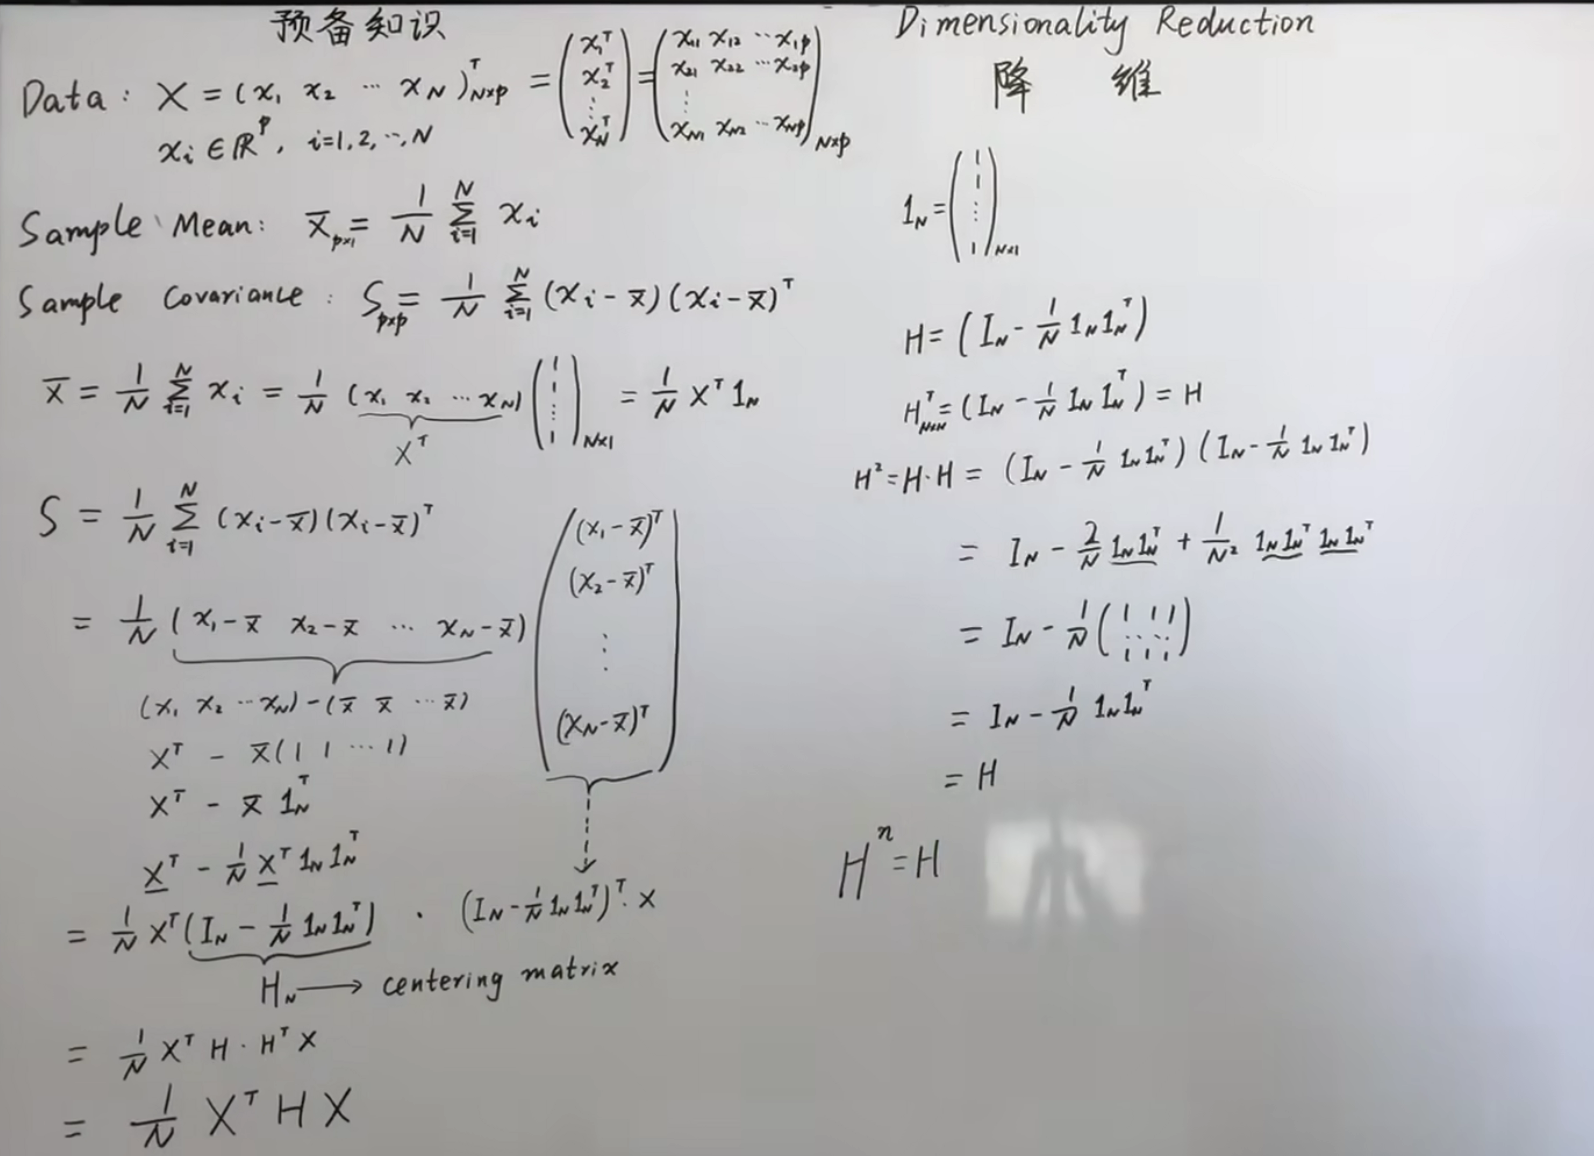 预备知识
Data: X = (x₁ x₂ ⋯ x_N)ᵀ_{N×p} = (x₁ᵀ x₂ᵀ ⋮ x_Nᵀ) = (x₁₁ x₁₂ ⋯x₁p x₂₁ x₂₂ ⋯x₂p ⋮ x_N1 x_N2 ⋯x_Np)_{N×p}
xᵢ ∈ ℝᵖ, i=1,2,⋯,N
Sample Mean: x̄_{p×1} = 1/N Σ_{i=1}^{N} xᵢ
Sample Covariance: S_{p×p} = 1/N Σ_{i=1}^{N} (xᵢ-x̄)(xᵢ-x̄)ᵀ
x̄ = 1/N Σ_{i=1}^{N} xᵢ = 1/N (x₁ x₂ ⋯ x_N) (1 1 ⋮ 1)_{N×1} = 1/N Xᵀ 1_N
Xᵀ
S = 1/N Σ_{i=1}^{N} (xᵢ-x̄)(xᵢ-x̄)ᵀ
= 1/N (x₁-x̄ x₂-x̄ ⋯ x_N-x̄) ((x₁-x̄)ᵀ (x₂-x̄)ᵀ ⋮ (x_N-x̄)ᵀ)
(x₁ x₂ ⋯x_N)-(x̄ x̄ ⋯x̄)
Xᵀ - x̄(1 1 ⋯1)
Xᵀ - x̄ 1_Nᵀ
Xᵀ - 1/N Xᵀ 1_N 1_Nᵀ
= 1/N Xᵀ(I_N - 1/N 1_N 1_Nᵀ) · (I_N - 1/N 1_N 1_Nᵀ)ᵀ · X
H_N ⟶ centering matrix
= 1/N Xᵀ H · Hᵀ X
= 1/N Xᵀ H X
Dimensionality Reduction
降 维
1_N = (1 1 ⋮ 1)_{N×1}
H = (I_N - 1/N 1_N 1_Nᵀ)
Hᵀ_{N×N} = (I_N - 1/N 1_N 1_Nᵀ) = H
H² = H·H = (I_N - 1/N 1_N 1_Nᵀ)(I_N - 1/N 1_N 1_Nᵀ)
= I_N - 2/N 1_N 1_Nᵀ + 1/N² 1_N 1_Nᵀ 1_N 1_Nᵀ
= I_N - 1/N (1 1 1 ⋯⋯ 1 1 1)
= I_N - 1/N 1_N 1_Nᵀ
= H
Hⁿ = H